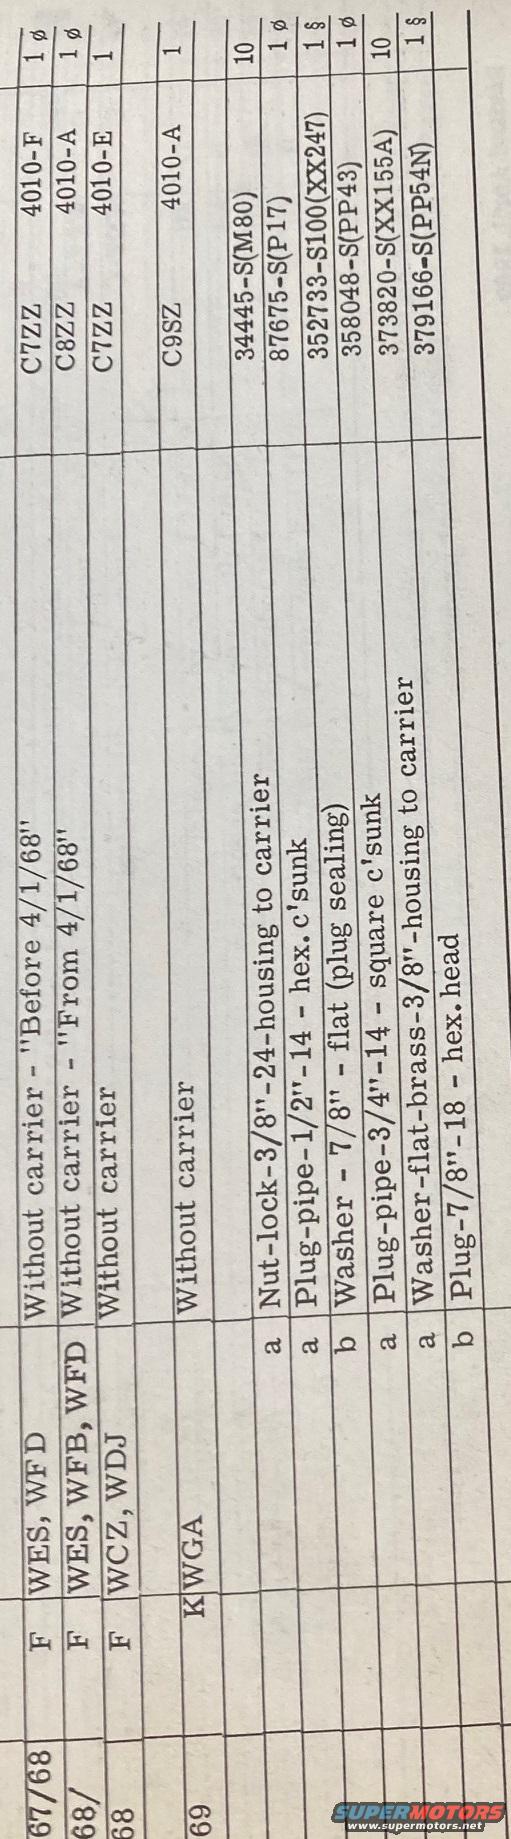 67/68 F WES, WFD Without carrier - "Before 4/1/68" C7ZZ 4010-F 1 ø
68/ F WES, WFB, WFD Without carrier - "From 4/1/68" C8ZZ 4010-A 1 ø
68 F WCZ, WDJ Without carrier C7ZZ 4010-E 1
69 K WGA Without carrier C9SZ 4010-A 1
a Nut-lock-3/8"-24-housing to carrier 34445-S(M80) 10
a Plug-pipe-1/2"-14 - hex. c'sunk 87675-S(P17) 1 ø
b Washer - 7/8" - flat (plug sealing) 352733-S100(XX247) 1 §
a Plug-pipe-3/4"-14 - square c'sunk 358048-S(PP43) 1 ø
a Washer-flat-brass-3/8"-housing to carrier 373820-S(XX155A) 10
b Plug-7/8"-18 - hex. head 379166-S(PP54N) 1 §
SUPERMOTORS
www.supermotors.net